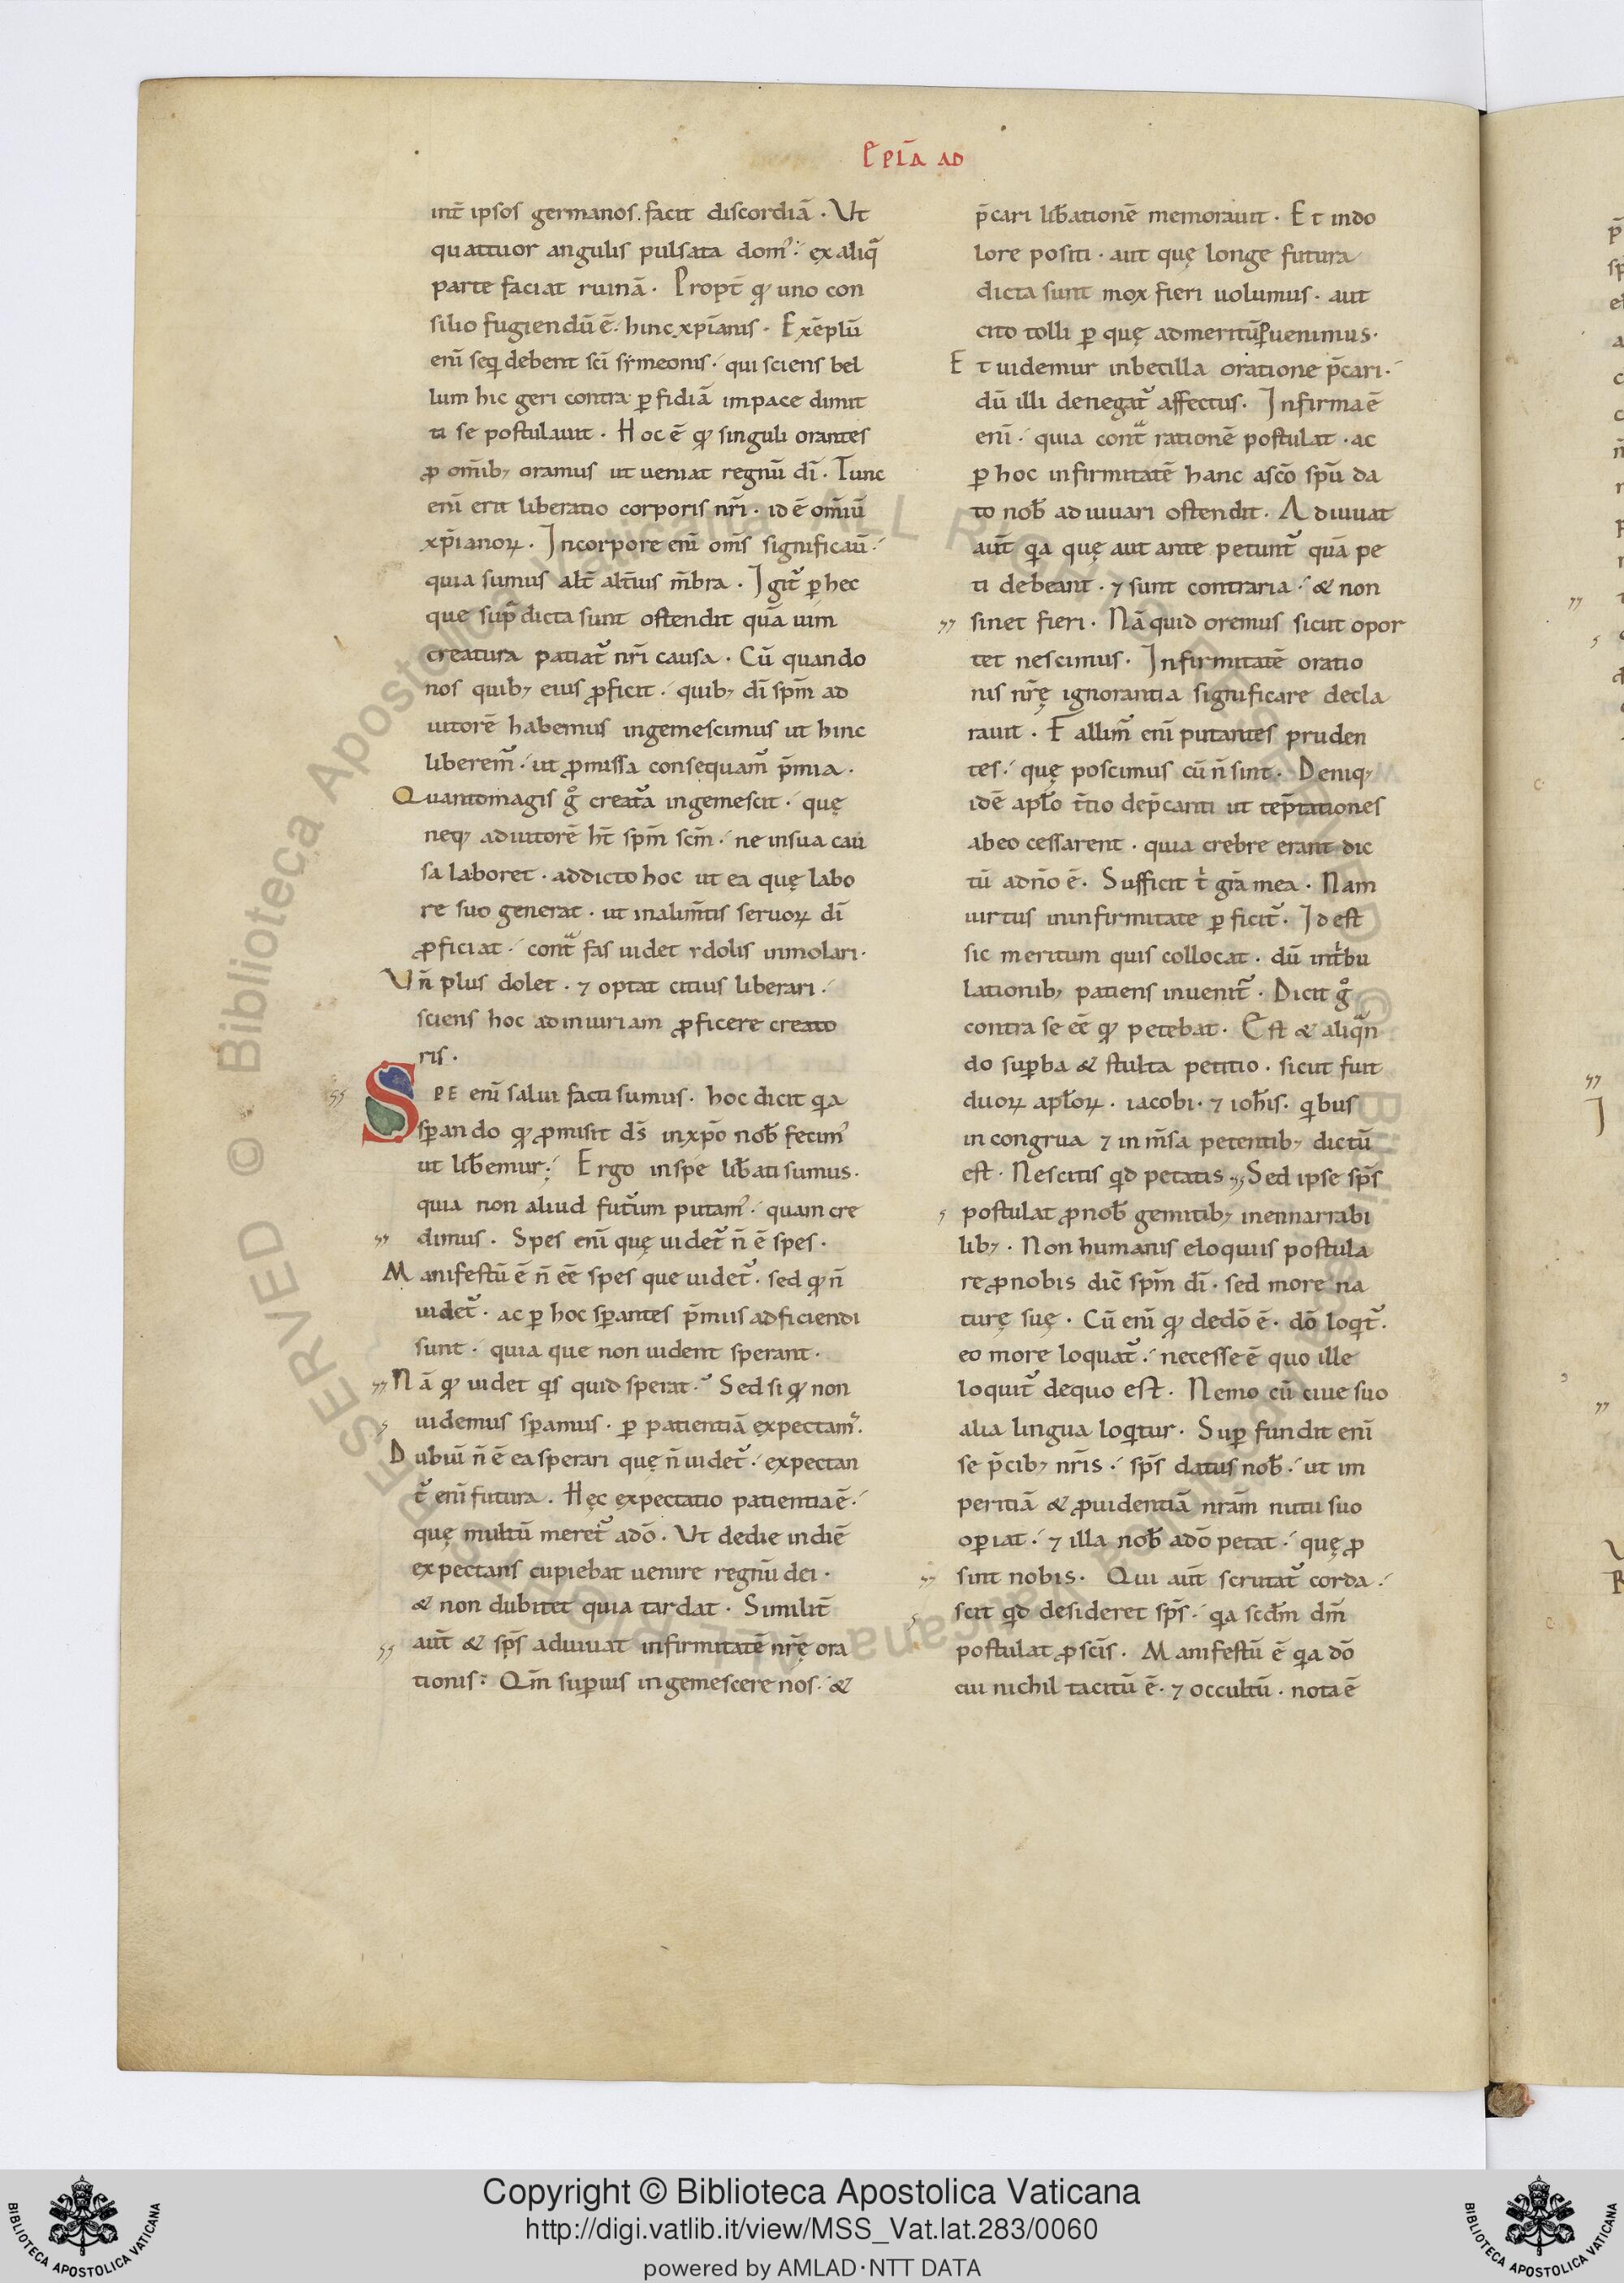 EPLA AD
int̄ ipsos germanos. facit discordiā · Vt
quattuor angulis pulsata dom᾽ ex aliq̄
parte faciat ruinā · Propt̄ qd̛ uno con
silio fugiendū ē · hinc xp̄ianis · Exēplū
enī seq̄ debent sc̄i sẏmeonis · qui sciens bel
lum hic geri contra ꝑfidiā in pace dimit
ti se postulauit · Hoc ē qđ singuli orantes
ꝓ om̄ib; oramus ut ueniat regnū dī · Tunc
enī erit liberatio corporis nr̄i · id ē om̄iū
xp̄ianoꝝ · In corpore enī om̄s significau̅ ·
quia sumus alt̄ alt̄ius m̄bra · Igit̄ ꝑ hec
que sup̄dicta sunt ostendit quā uim
creatura patiat̄ nr̄i causa · Cū quando
nos quib; eius ꝓficit · quib; dī sp̄m ad
iutorē habemus ingemescimus ut hinc
liberem̄ · ut ꝓmissa consequam̄ p̄mia ·
Quanto magis g̊ creat̄a ingemescit · quę
neq; adiutorē ht̄ sp̄m sc̄m · ne in sua cau
sa laboret · addicto hoc ut ea quę labo
re suo generat · ut in alim̄tis seruoꝝ dī
ꝓficiat · cont̄ fas uidet ydolis inmolari ·
Vn̄ plus dolet · ⁊ optat citius liberari ·
sciens hoc ad iniuriam ꝓficere creato
ris ·
SPE enī salui facti sumus · hoc dicit q̄a
sꝑando qđ ꝓmisit ds̄ in xp̄o nob̄ fecim᾽
ut lib̄emur · Ergo in spe lib̄ati sumus ·
quia non aliud fut̄um putam᾽ · quam cre
dimus · Spes enī quę uidet̄ n̄ ē spes ·
Manifestū ē n̄ eē spes que uidet̄ · sed qđ n̄
uidet̄ · ac ꝑ hoc sꝑantes p̄miis adficiendi
sunt · quia que non uident sperant ·
Nā qđ uidet q̄s quid sperat · Sed si qđ non
uidemus sꝑamus · ꝑ patientiā expectam᾽ ·
Dubiū n̄ ē ea sperari quę n̄ uidet̄ · expectan
t̄ enī futura · Hęc expectatio patientia ē ·
quę multū meret̄ a dō · Vt de die in diē
expectans cupiebat uenire regnū dei ·
& non dubitet quia tardat · Similit̄
aut̄ & sp̄s adiuuat infirmitatē nr̄ę ora
tionis · Qm̄ suꝑius ingemescere nos · &
p̄cari lib̄ationē memorauit · Et in do
lore positi · aut quę longe futura
dicta sunt mox fieri uolumus · aut
cito tolli ꝑ quę ad meritū ꝑuenimus ·
Et uidemur inbecilla oratione p̄cari ·
dū illi denegat̄ affectus · Infirma ē
enī · quia cont̄ rationē postulat · ac
ꝑ hoc infirmitatē hanc a sc̄o sp̄u da
to nob̄ adiuuari ostendit · Adiuuat
aut̄ q̄a quę aut ante petunt̄ quā pe
ti debeant · ⁊ sunt contraria · & non
sinet fieri · Nā quid oremus sicut opor
tet nescimus · Infirmitatē oratio
nis nr̄ę ignorantia significare decla
rauit · Fallim̄ enī putantes pruden
tes · quę poscimus cū n̄ sint · Deniq;
idē apl̄o t̄tio dep̄canti ut tep̄tationes
ab eo cessarent · quia crebre erant dic
tū a dn̄o ē · Sufficit t̄ gr̄a mea · Nam
uirtus in infirmitate ꝑficit̄ · Id est
sic meritum quis collocat · dū in tb̄u
lationib; patiens inuenit̄ · Dicit g̊
contra se eē qđ petebat · Est & aliq̄n
do suꝑba & stulta petitio · sicut fuit
duoꝝ apl̄oꝝ · iacobi · ⁊ ioh̄is · q̄bus
in congrua ⁊ inm̄sa petentib; dictū
est · Nescitis q̄d petatis · Sed ipse sp̄s
postulat ꝓ nob̄ gemitib; inennarrabi
lib; · Non humanis eloquiis postula
re ꝓ nobis dic̄ sp̄m dī · sed more na
turę suę · Cū enī qđ de dō ē · dō loq̄t̄ ·
eo more loquat̄ · necesse ē quo ille
loquit̄ de quo est · Nemo cū ciue suo
alia lingua loq̄tur · Suꝑfundit enī
se p̄cib; nr̄is · sp̄s datus nob̄ · ut im
peritiā & ꝓuidentiā nr̄am nutu suo
oꝑiat · ⁊ illa nob̄ a dō petat · quę ꝓ
sint nobis · Qui aut̄ scrutat̄ corda ·
scit q̄d desideret sp̄s · q̄a scd̄m dm̄
postulat ꝓ sc̄is · Manifestū ē q̄a dō
cui nichil tacitū ē · ⁊ occultū · nota ē
Copyright © Biblioteca Apostolica Vaticana
http://digi.vatlib.it/view/MSS_Vat.lat.283/0060
powered by AMLAD·NTT DATA
BIBLIOTECA APOSTOLICA VATICANA
BIBLIOTECA APOSTOLICA VATICANA